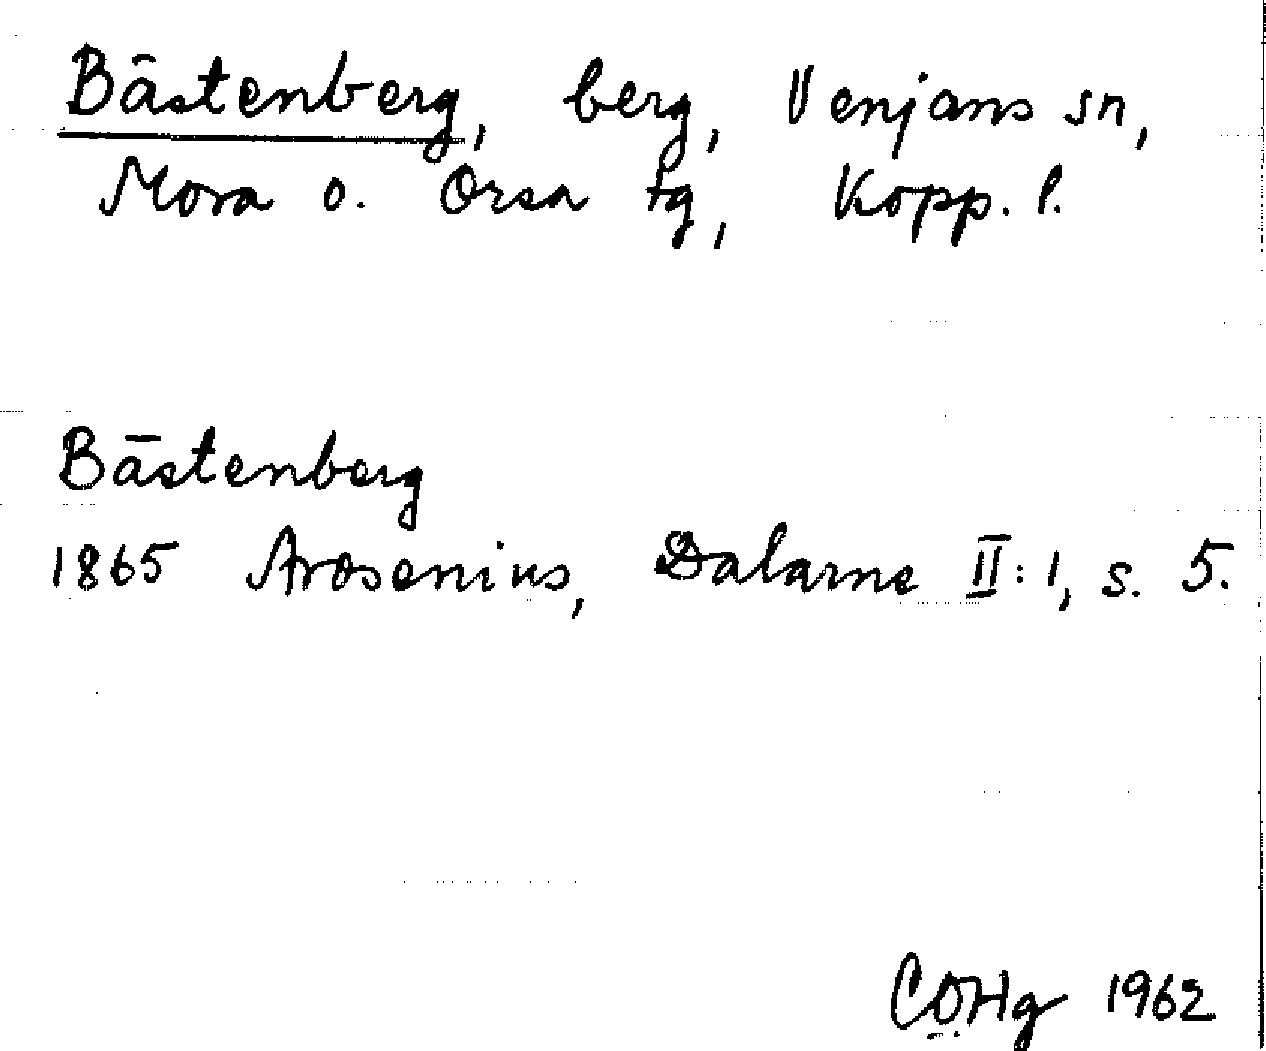 Bästenberg, berg, Venjans sn,
Mora o. Orsa tg, Kopp. l.
Bästenberg
1865 Arosenius, Dalarne II:1, s. 5.
COHg 1962